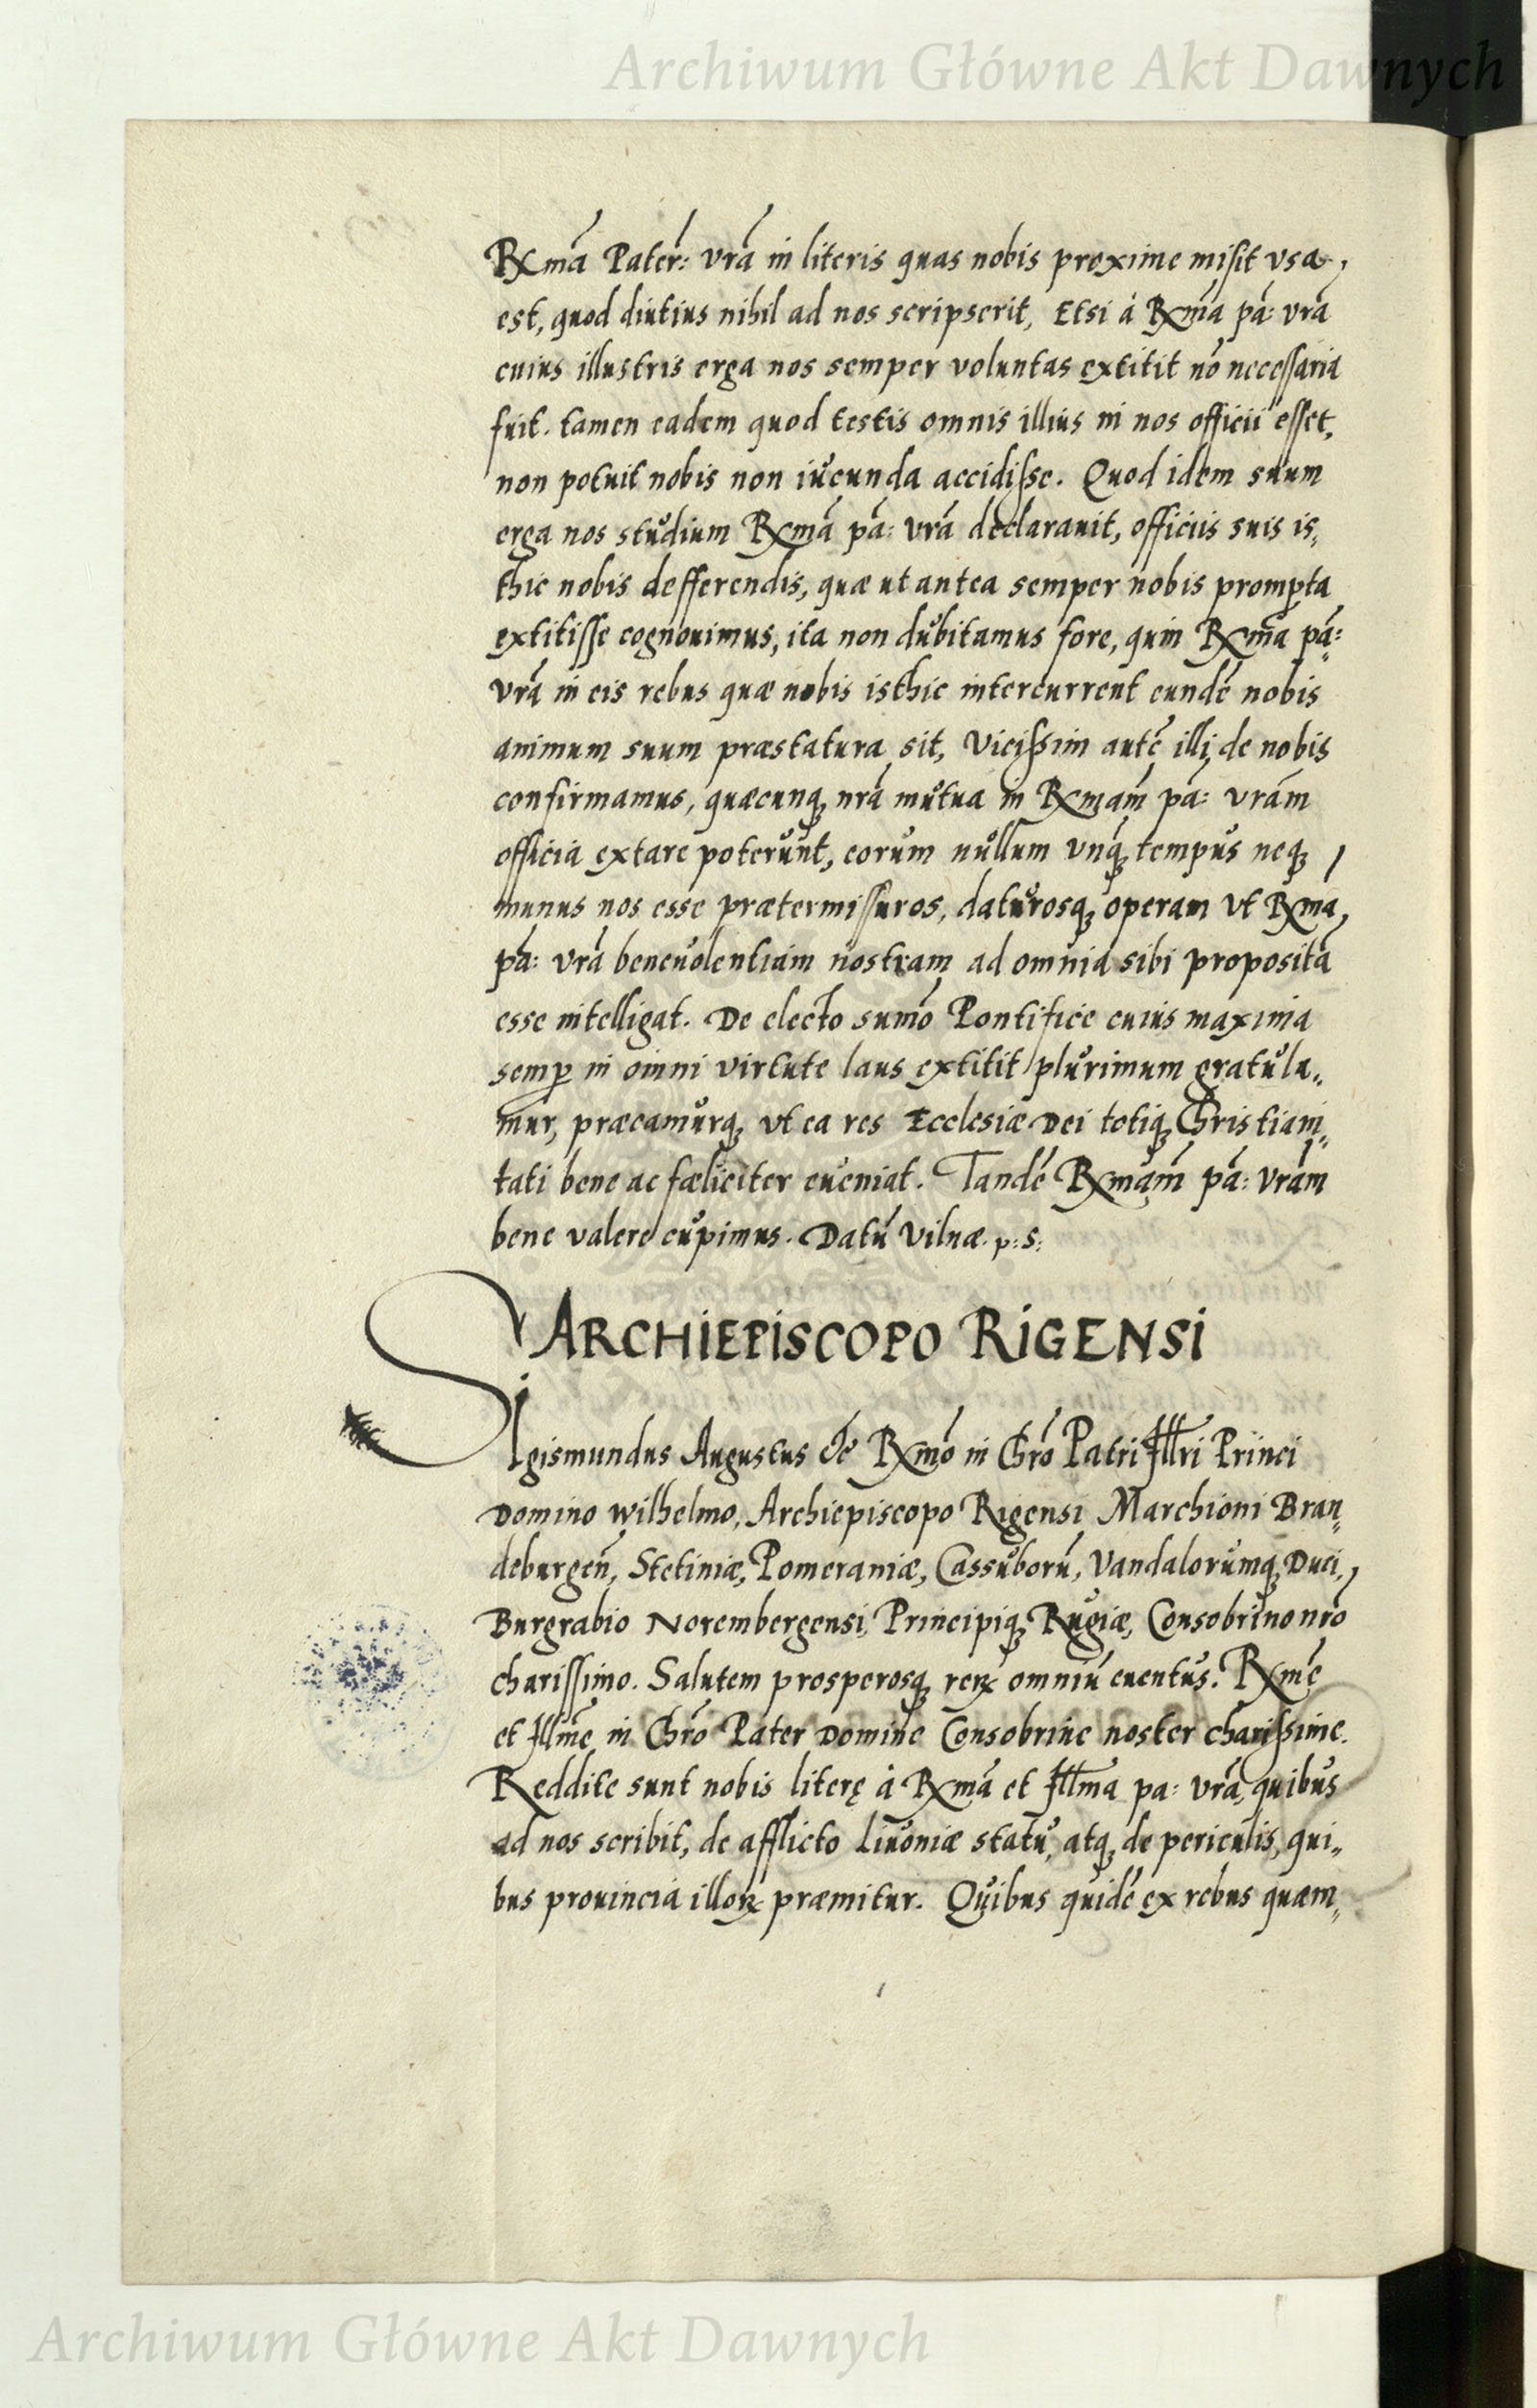 Archiwum Główne Akt Dawnych
Rxmã Pater: vrã in literis quas nobis proxime misit vsa
est, quod diutius nihil ad nos scripserit, Etsi à Rxma pã: vrã
cuius illustris erga nos semper voluntas extitit nõ necessaria
fuit. tamen eadem quod testis omnis illius in nos officii esset,
non potuit nobis non iucunda accidisse. Quod idem suum
erga nos studium Rxmã pã: vrã declarauit, officiis suis is„
thic nobis defferendis, quæ ut antea semper nobis prompta
extitisse cognouimus, ita non dubitamus fore, quin Rxma pã:
vrã in eis rebus quæ nobis isthic intercurrent eundẽ nobis
animum suum præstatura sit, Vicissim autẽ illi de nobis
confirmamus, quæcunq; nrã mutua in Rxmam̃ pã: vrãm
officia extare poterunt, eorum nullum vnq̃; tempus neq;
munus nos esse prætermissuros, daturosq; operam vt Rxma
pã: vrã beneuolentiam nostram ad omnia sibi proposita
esse intelligat. De electo sumõ Pontifice cuius maxima
semꝑ in omni virtute laus extitit plurimum gratula„
mur, præcamurq; vt ea res Ecclesiæ Dei totiq; Christiani„
tati bene ac fæliciter eueniat. Tandẽ Rxmam̃ pã: vrãm
bene valere cupimus. Datũ Vilnæ. p: s:
ARCHIEPISCOPO RIGENSI
Sigismundus Augustus &c̃ Rxmõ in Chrõ Patri Illri Princi
Domino Wilhelmo, Archiepiscopo Rigensi Marchioni Bran„
deburgeñ, Stetiniæ, Pomeraniæ, Cassuborũ, Vandalorumq; Duci,
Burgrabio Norembergensi, Principiq; Rugiæ, Consobrino nrõ
charissimo. Salutem prosperosq; rerꝝ omniũ euentus. Rxmẽ
et Illmẽ in Chrõ Pater Domine Consobrine noster charissime.
Reddite sunt nobis literę à Rxmã et Illma pa: vrã, quibus
ad nos scribit, de afflicto Liuoniæ statu, atq; de periculis, qui„
bus prouincia illoꝝ præmitur. Quibus quidẽ ex rebus quæm„
Archiwum Główne Akt Dawnych